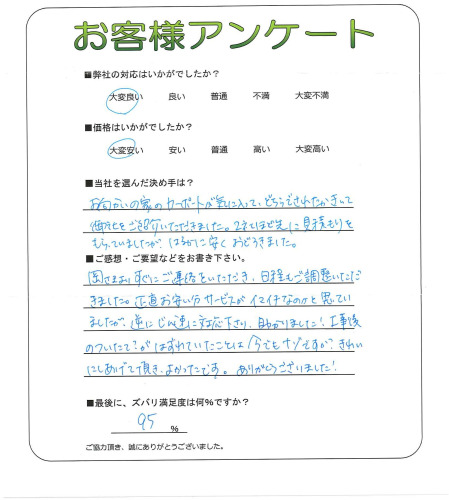 お客様アンケート
■弊社の対応はいかがでしたか？
大変良い 良い 普通 不満 大変不満
■価格はいかがでしたか？
大変安い 安い 普通 高い 大変高い
■当社を選んだ決め手は？
お向かいの家のカーポートが気に入って、どちらでされたかきって
御社をご紹介いただきました。2社ほど先に見積もりを
もらっていましたが、はるかに安くおどろきました。
■ご感想・ご要望などをお書き下さい。
すぐにご連絡をいただき、日程もご調整いただ
きました。正直お安い分サービスがイマイチなのかと思ってい
ましたが、逆にじん速に対応下さり、助かりました！工事後
のついたて？がはずれていたことは今でもナゾですが、きれい
にしあげて頂き、よかったです。ありがとうございました！
■最後に、ズバリ満足度は何％ですか？
95 ％
ご協力頂き、誠にありがとうございました。